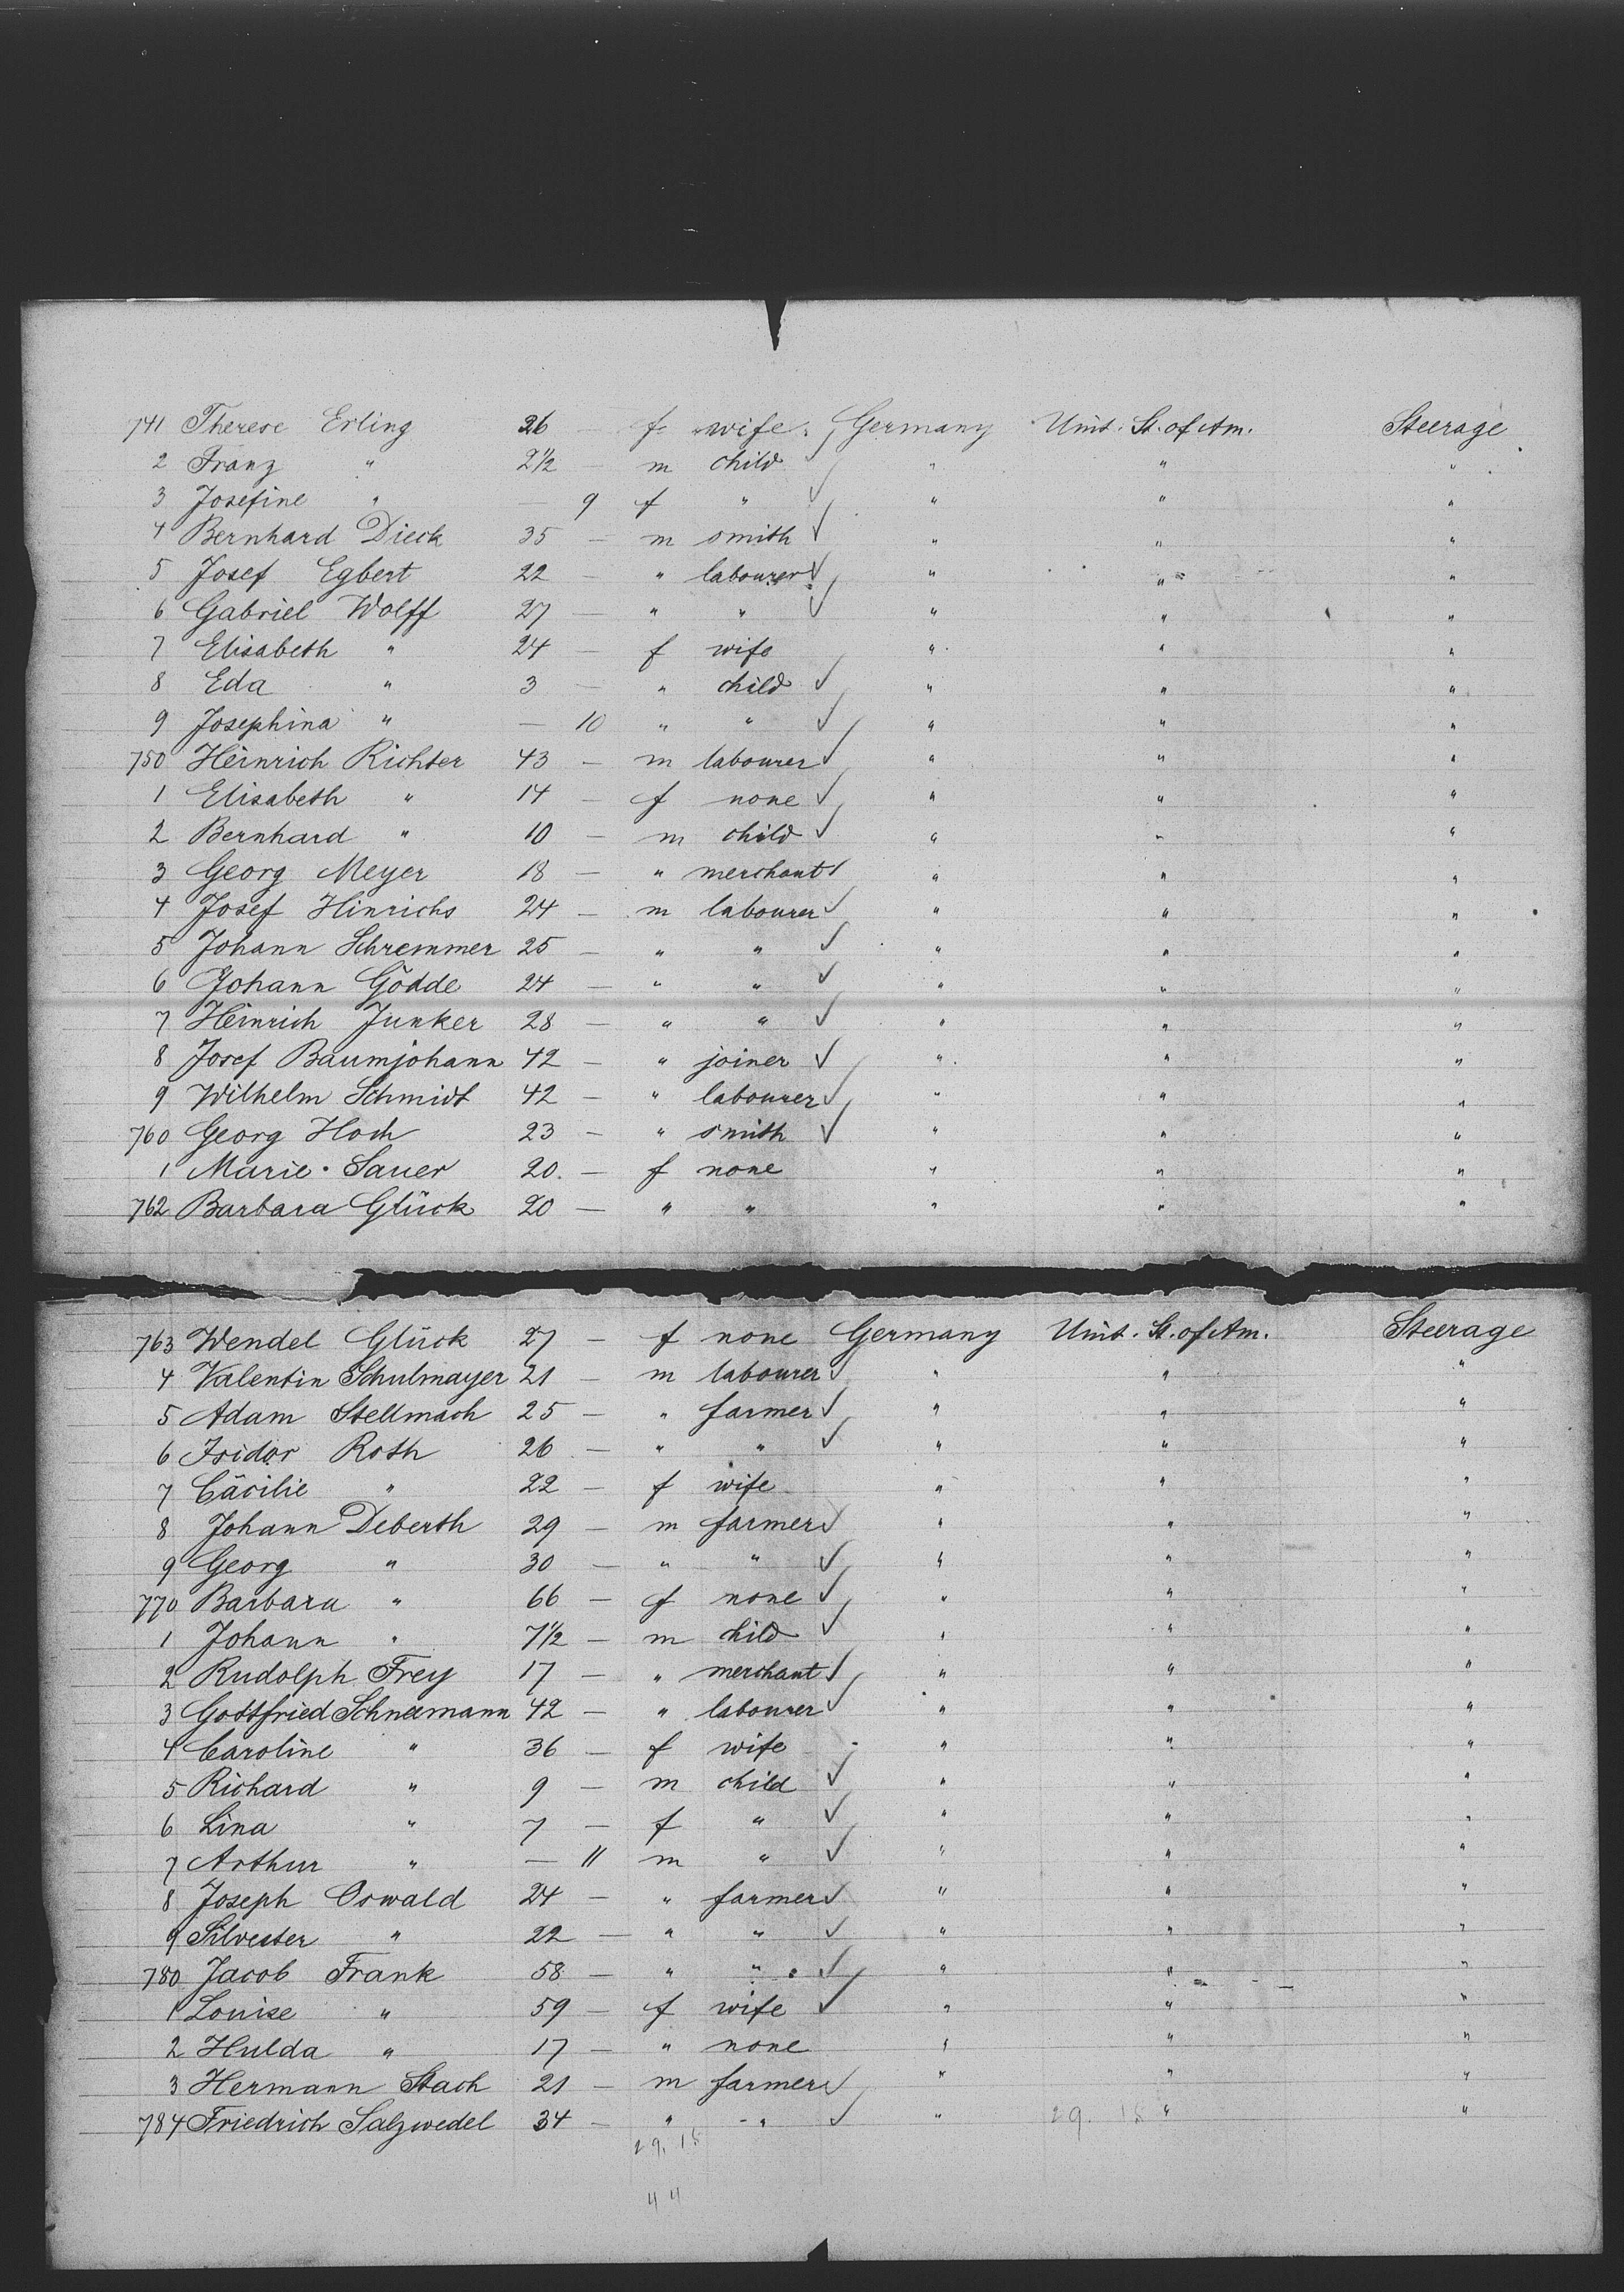 741 Therese Erling 26 — f wife Germany Unit. St. of Am. Steerage
2 Franz " 2 1/2 — m child " " "
3 Josefine " — 9 f " " " "
4 Bernhard Dieck 35 — m smith " " "
5 Josef Egbert 22 — " labourer " " "
6 Gabriel Wolff 27 — " " " " "
7 Elisabeth " 24 — f wife " " "
8 Eda " 3 — " child " " "
9 Josephina " — 10 " " " " "
750 Heinrich Richter 43 — m labourer " " "
1 Elisabeth " 14 — f none " " "
2 Bernhard " 10 — m child " " "
3 Georg Meyer 18 — " merchant " " "
4 Josef Hinrichs 24 — m labourer " " "
5 Johann Schremmer 25 — " " " " "
6 Johann Gödde 24 — " " " " "
7 Heinrich Junker 28 — " " " " "
8 Josef Baumjohann 42 — " joiner " " "
9 Wilhelm Schmidt 42 — " labourer " " "
760 Georg Hoch 23 — " smith " " "
1 Marie Sauer 20 — f none " " "
762 Barbara Glück 20 — " " " " "
763 Wendel Glück 27 — f none Germany Unit. St. of Am. Steerage
4 Valentin Schulmayer 21 — m labourer " " "
5 Adam Stellmach 25 — " farmer " " "
6 Isidor Roth 26 — " " " " "
7 Cäcilie " 22 — f wife " " "
8 Johann Deberth 29 — m farmer " " "
9 Georg " 30 — " " " " "
770 Barbara " 66 — f none " " "
1 Johann " 7 1/2 — m child " " "
2 Rudolph Frey 17 — " merchant " " "
3 Gottfried Schneemann 42 — " labourer " " "
4 Caroline " 36 — f wife " " "
5 Richard " 9 — m child " " "
6 Lina " 7 — f " " " "
7 Arthur " — 11 m " " " "
8 Joseph Oswald 24 — " farmer " " "
9 Silvester " 22 — " " " " "
780 Jacob Frank 58 — " " " " "
1 Louise " 59 — f wife " " "
2 Hulda " 17 — " none " " "
3 Hermann Stach 21 — m farmer " " "
784 Friedrich Salzwedel 34 — " " " " "
44